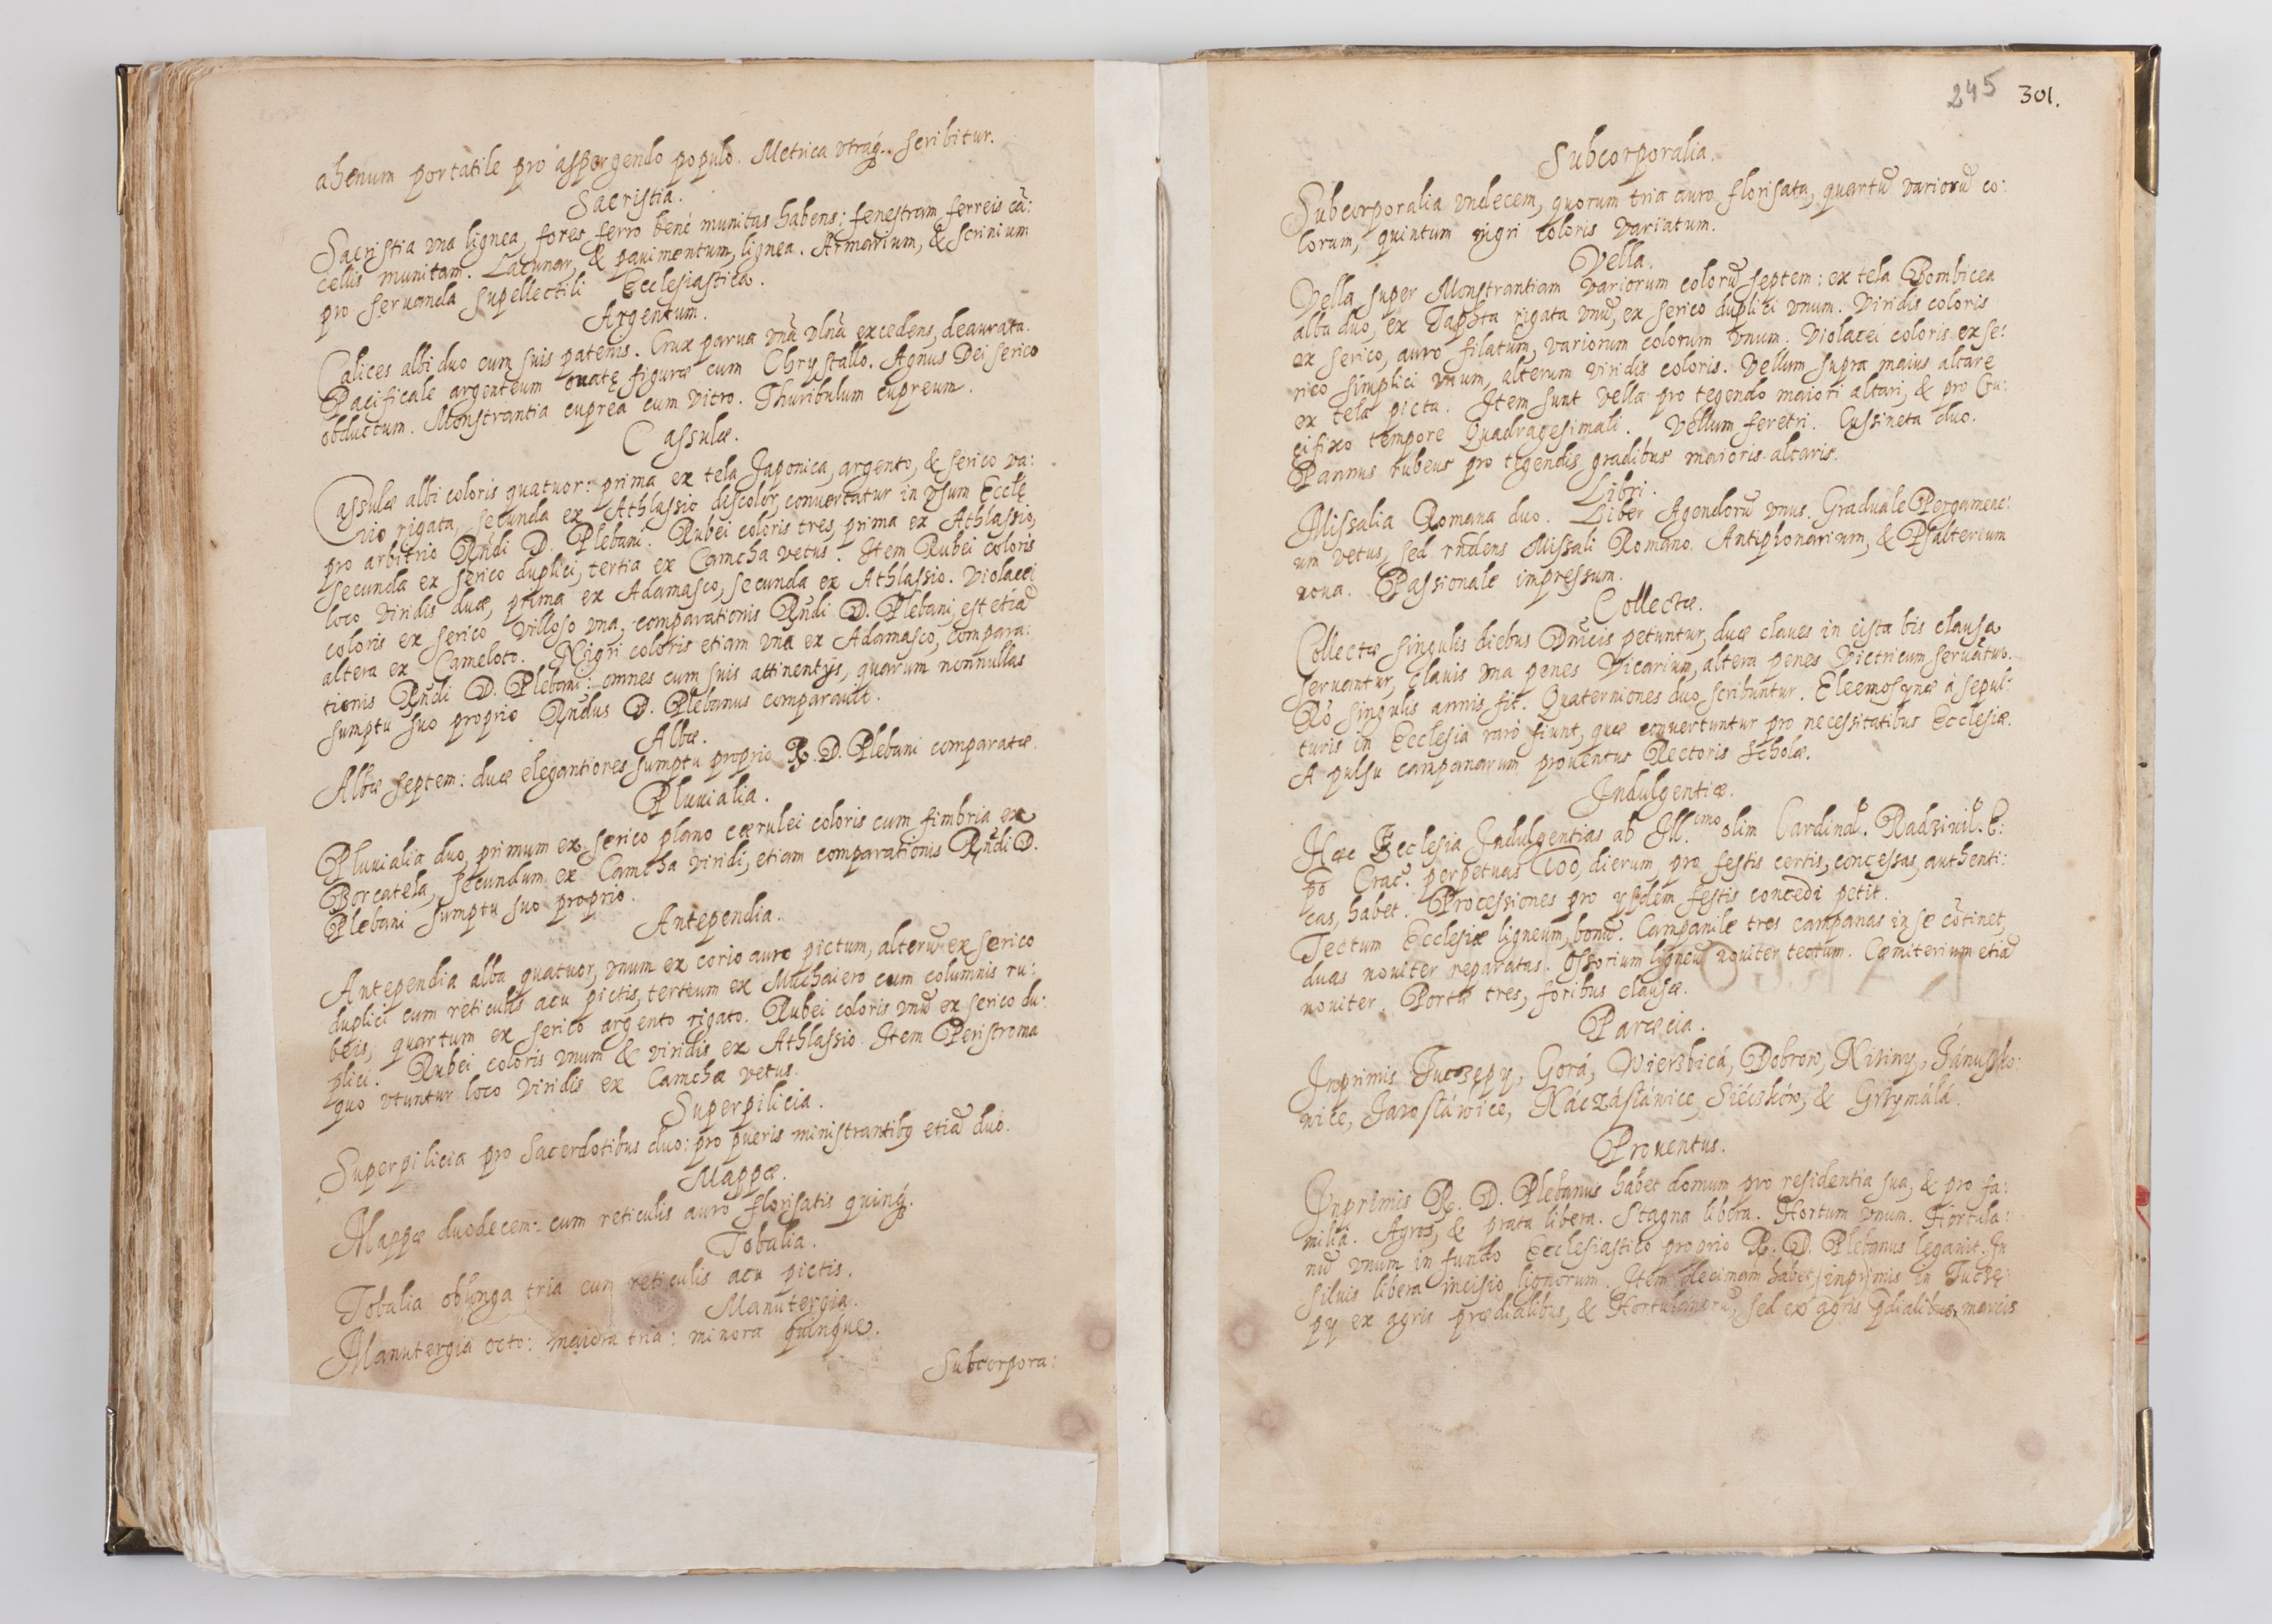 ahenum portatile pro aspergendo populo. Metrica vtráq. scribitur.
Sacristia.
Sacristia vna lignea, fores ferro bené munitas habens: fenestram ferreis cā:
cellis munitam. Lacunar, & pauimentum, lignea. Armarium, & scrinium
pro seruanda supellectili Ecclesiastica.
Argentum.
Calices albi duo cum suis patenis. Crux parua vnā vlnā excedens, deaurata.
Pacificale argenteum ouatę figuræ cum Chrystallo. Agnus Dei serico
obductum. Monstrantia cuprea cum vitro. Thuribulum cupreum.
Cassulæ.
Cassulæ albi coloris quatuor: prima ex tela Japonica, argento, & serico va:
rio rigata, secunda ex Athlassio discolor, conuertatur in vsum Ecclę
pro arbitrio Rndi D. Plebani. Rubei coloris tres, prima ex Athlassio,
secunda ex serico duplici, tertia ex Camcha vetus. Item Rubei coloris
loco viridis duæ, prima ex Adamasco, secunda ex Athlassio. Violacei
coloris ex serico villoso vna, comparationis Rndi D. Plebani, est etiā
altera ex Cameloto. Nigri coloris etiam vna ex Adamasco, compara:
tionis Rndi D. Plebani: omnes cum suis attinentijs, quarum nonnullas
sumptu suo proprio Rndus D. Plebanus comparauit.
Albæ.
Albæ septem: duæ elegantiores sumptu proprio R. D. Plebani comparatæ.
Pluuialia.
Pluuialia duo, primum ex serico plano cærulei coloris cum fimbria ex
Borcatela, secundum ex Camcha viridi, etiam comparationis Rndi D.
Plebani sumptu suo proprio.
Antependia.
Antependia alba quatuor, vnum ex corio auro pictum, alterū ex serico
duplici cum reticulis acu pictis, tertium ex Muchaiero cum columnis ru:
beis, quartum ex serico argento rigato. Rubei coloris vnū ex serico du:
plici. Rubei coloris vnum & viridis ex Athlassio. Item Peristroma
quo vtuntur loco viridis ex Camcha vetus.
Superpilicia.
Superpilicia pro Sacerdotibus duo: pro pueris ministrantibq etiā duo.
Mappæ.
Mappæ duodecem: cum reticulis auro florisatis quinq.
Tobalia.
Tobalia oblonga tria cum reticulis acu pictis.
Manutergia.
Manutergia octo: maiora tria: minora quinque.
Subcorpora:
245 301.
Subcorporalia.
Subcorporalia vndecem, quorum tria auro florisata, quartū variorū co:
lorum, quintum nigri coloris variatum.
Vella.
Vella super Monstrantiam variorum colorū septem: ex tela Bombicea
alba duo, ex Taphta rigata vnū, ex serico duplici vnum. Viridis coloris
ex serico, auro filatum, variorum colorum vnum. Violacei coloris ex se:
rico simplici vnum, alterum viridis coloris. Vellum supra maius altare
ex tela picta. Item sunt vella pro tegendo maiori altari, & pro Cru:
cifixo tempore Quadragesimali. Vellum feretri. Cussineta duo.
Pannus rubeus pro tegendis gradibus maioris altaris.
Libri.
Missalia Romana duo. Liber Agendorū vnus. Graduale Pergamene:
um vetus, sed rndens Missali Romano. Antiphonarium, & Psalterium
noua. Passionale impressum.
Collectæ.
Collectæ singulis diebus Dnicis petuntur, duæ claues in cista bis clausa
seruantur, clauis vna penes Vicarium, altera penes Victricum seruatur.
Rō singulis annis fit. Quaterniones duo scribuntur. Eleemosynæ à sepul:
turis in Ecclesia raró fiunt, quæ conuertuntur pro necessitatibus Ecclesiæ.
A pulsu campanarum prouentus Rectoris Scholæ.
Indulgentiæ.
Hæc Ecclesia Indulgentias ab Ill.imo olim Cardinal. Radziuil. E:
pō Crac. perpetuas 100, dierum, pro festis certis, concessas, authenti:
cas, habet. Processiones pro ijsdem festis concedi petit.
Tectum Ecclesiæ ligneum, bonū. Campanile tres campanas in se cōtinet,
duas nouiter reparatas. Ossorium ligneū nouiter tectum. Cæmiterium etiā
nouiter. Portæ tres, foribus clausæ.
Paræcia.
Inprimis Tuczępy, Gorá, Wierzbicá, Dobrow, Niziny, Jánuszko:
wice, Jarosláwice, Káczásláwice, Sieczków, & Grzymálá.
Prouentus.
Inprimis R. D. Plebanus habet domum pro residentia sua, & pro fa:
milia. Agros, & prata libera. Stagna libera. Hortum vnum. Hortula:
nū vnum in fundo Ecclesiastico proprio R. D. Plebanus legauit. In
siluis libera incisio lignorum. Item decimam habet, inprimis in Tuczę:
py ex agris prædialibus, & Hortulanorū, sed ex agris pdialibus, marcis